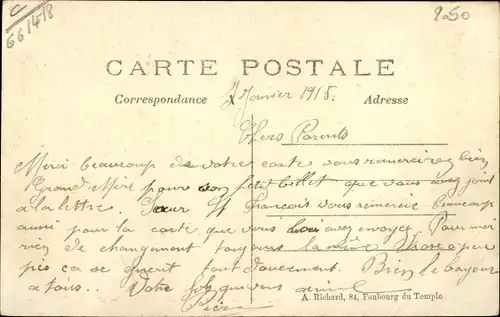 66148
250
CARTE POSTALE
Correspondance
Adresse
7 Janvier 1915.
Chers Parents
Merci beaucoup de votre carte vous remercirez bien
Grand Mère pour son petit billet que vous avez joint
a la lettre. Sœur St François vous remercie beaucoup
aussi pour la carte que vous lui avez envoyer. Pour moi
rien de changement toujours la même chose a peu
près ça se guerit tout doucement. Bien le bonjour
a tous. Votre fils qui vous aime
A. Richard, 84, Faubourg du Temple